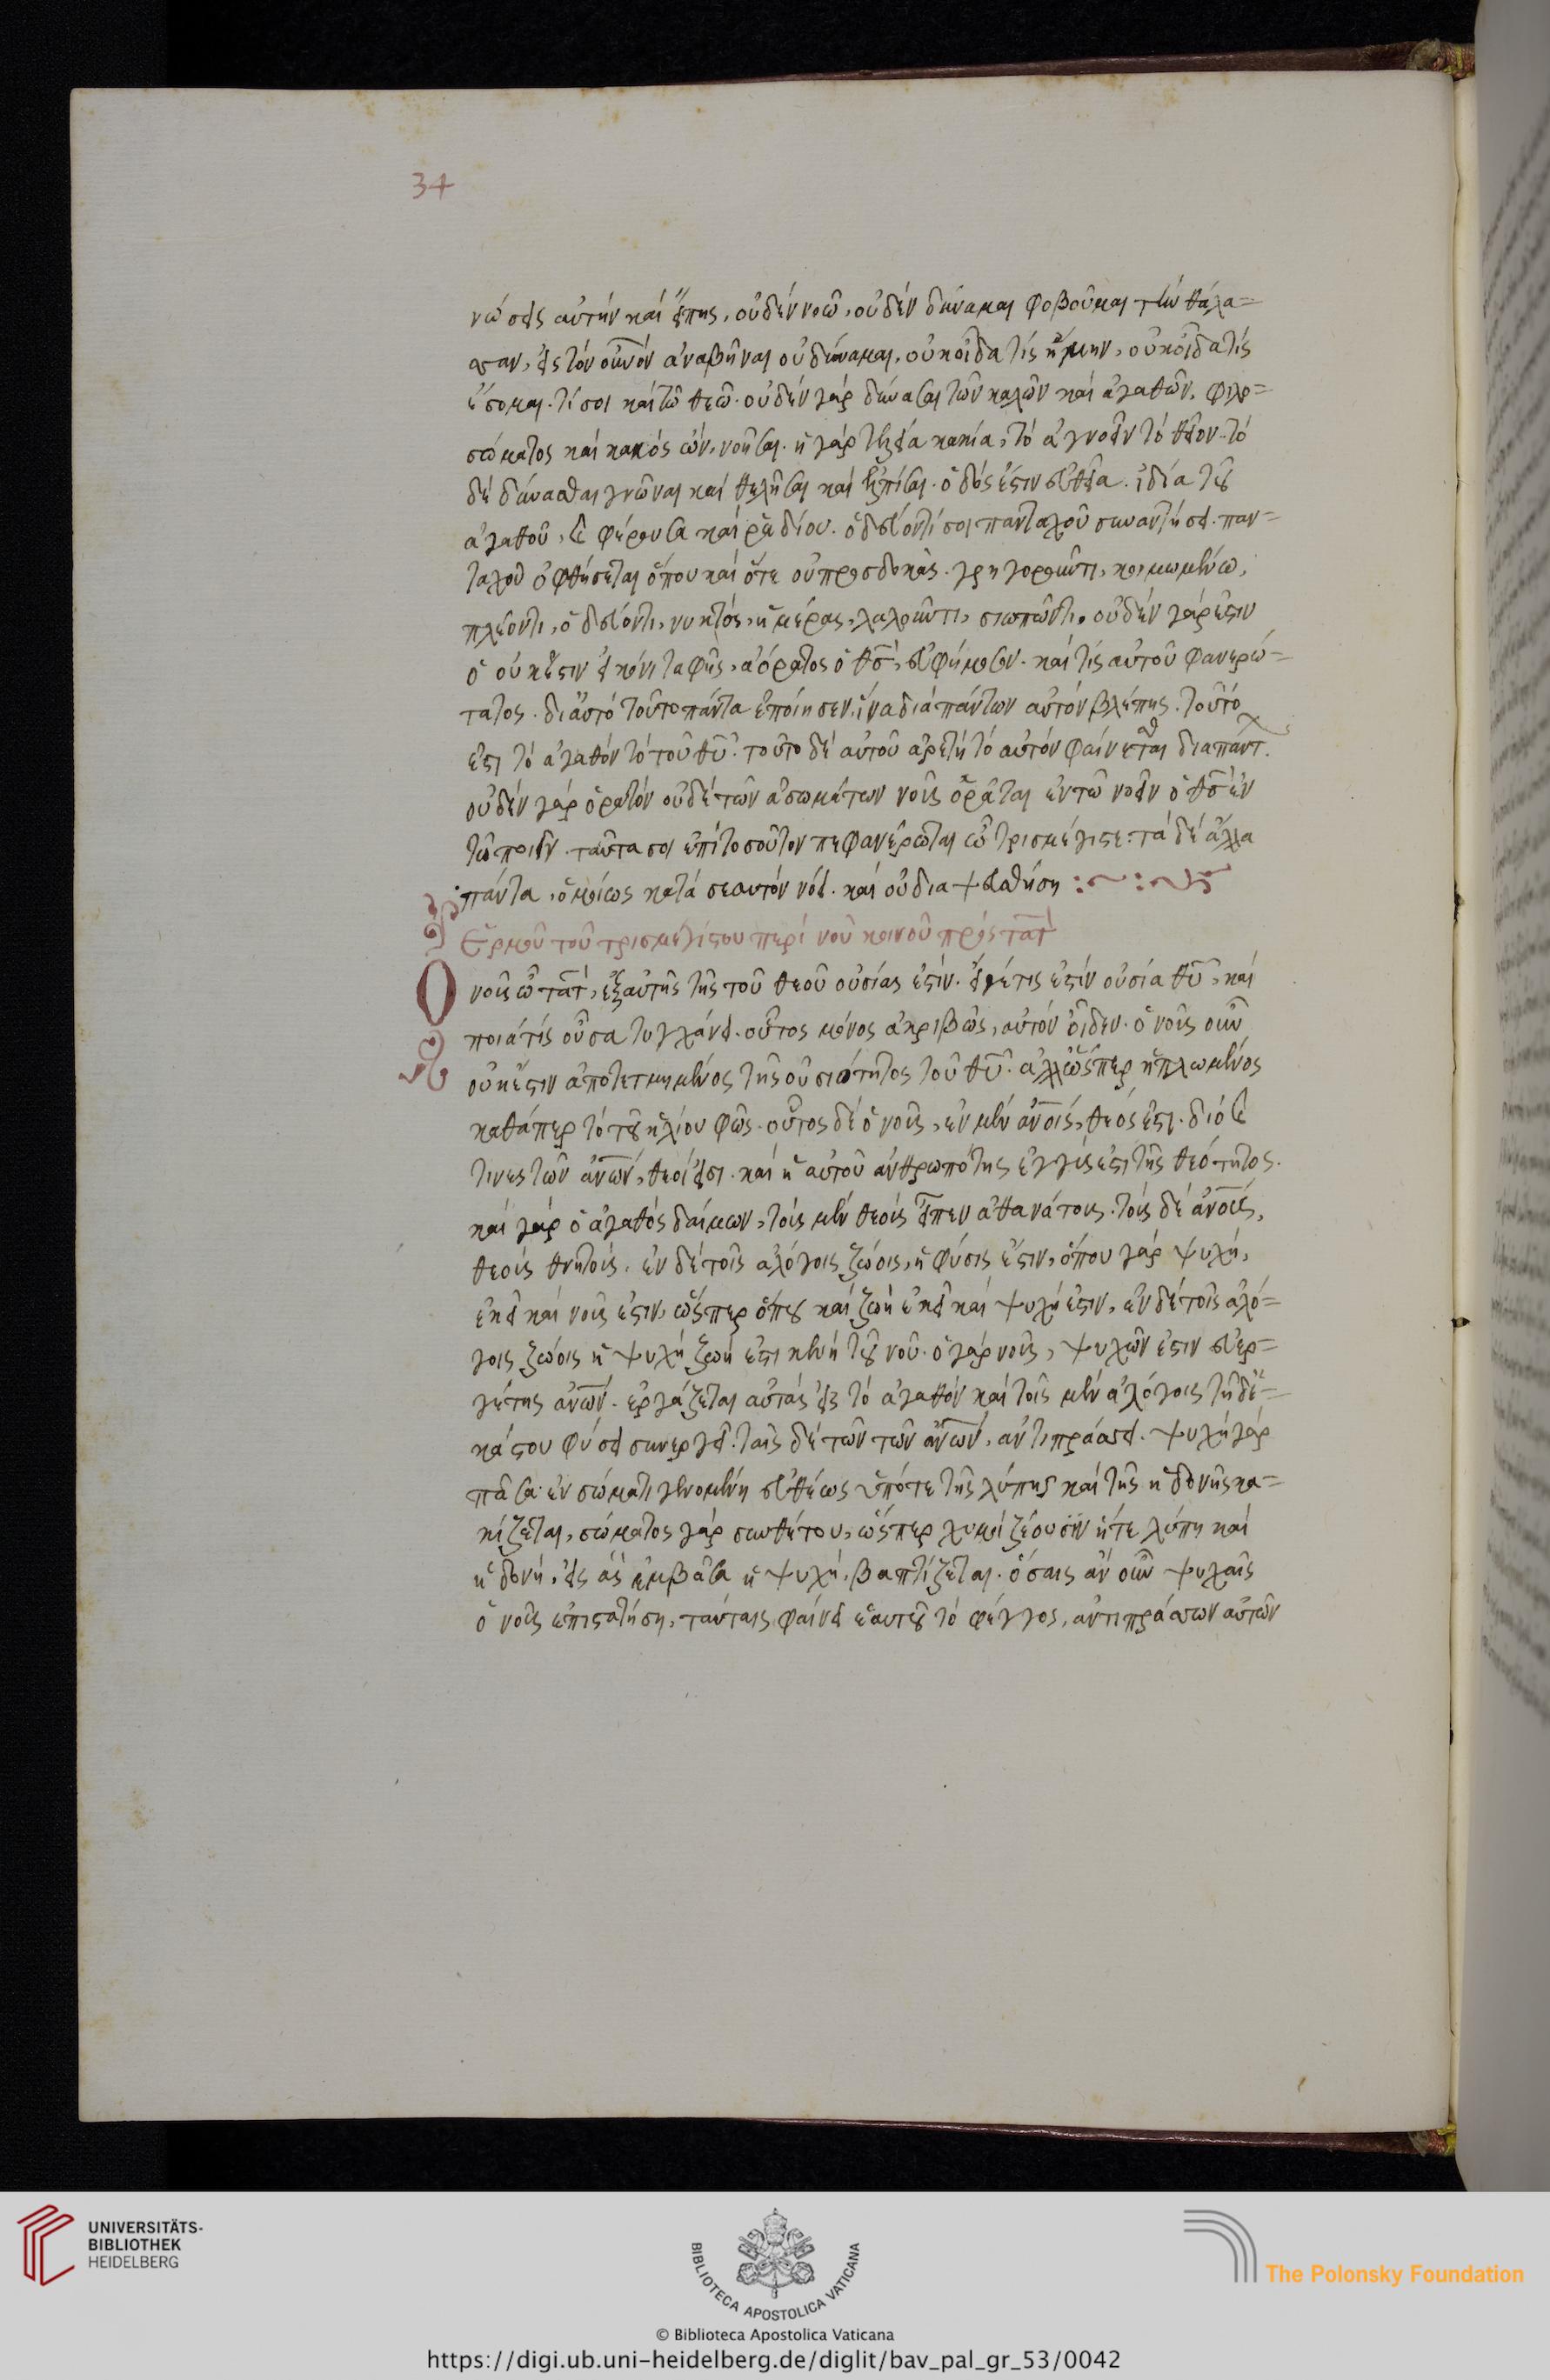 34
νώσεις αὐτὴν καὶ εἴπῃς, οὐδὲν νοῶ, οὐδὲν δύναμαι φοβοῦμαι τὴν θάλα=
σσαν, εἰς τὸν οὐνὸν ἀναβῆναι οὐ δύναμαι, οὐκ οἶδα τίς ἤμην, οὐκ οἶδα τίς
ἔσομαι. τί σοι καὶ τῶ θεῶ. οὐδὲν γὰρ δύνασαι τῶν καλῶν καὶ ἀγαθῶν, φιλο=
σώματος καὶ κακὸς ὤν, νοῆσαι. ἡ γὰρ τελεία κακία, τὸ ἀγνοεῖν τὸ θεῖον. τὸ
δὲ δύνασθαι γνῶναι καὶ θελῆσαι καὶ ἐλπίσαι. ὁδός ἐστιν εὐθεῖα. ἰδία τοῦ
ἀγαθοῦ, καὶ φέρουσα καὶ ῥᾳδίου. ὁδεύοντί σοι πανταχοῦ συναντήσει. παν=
ταχοῦ ὀφθήσεται ὅπου καὶ ὅτε οὐ προσδοκᾶς. γρηγοροῦντι, κοιμωμένω,
πλέοντι, ὁδεύοντι, νυκτός, ἡμέρας, λαλοῦντι, σιωπῶντι. οὐδὲν γάρ ἐστιν
ὃ οὐκ ἔστιν εἰκόνι ταφῆς, ἀόρατος ὁ θς, εὐφήμησον. καὶ τίς αὐτοῦ φανερώ=
τατος. δι' αὐτὸ τοῦτο πάντα ἐποίησεν, ἵνα διὰ πάντων αὐτὸν βλέπῃς. τοῦτό
ἐστι τὸ ἀγαθὸν τὸ τοῦ θυ. τοῦτο δὲ αὐτοῦ ἀρετὴ τὸ αὐτὸν φαίνεσθαι διὰ πάντ.
οὐδὲν γὰρ ὁρατὸν οὐδὲ τῶν ἀσωμάτων νοῦς ὁρᾶται ἐν τῶ νοεῖν ὁ θς ἐν
τῶ ποιεῖν. ταῦτα σοι ἐπὶ τοσοῦτον πεφανέρωται ὦ τρισμέγιστε. τὰ δὲ ἄλλα
πάντα, ὁμοίως κατὰ σεαυτὸν νόει. καὶ οὐ διαψευσθήσῃ :~:~
Ἑρμοῦ τοῦ τρισμεγίστου περὶ νοῦ κοινοῦ πρὸς τάτ
Ὁ νοῦς ὦ τάτ, ἐξ αὐτῆς τῆς τοῦ θεοῦ οὐσίας ἐστίν. εἴ γέ τις ἐστὶν οὐσία θυ, καὶ
ποιά τίς οὖσα τυγχάνει. οὗτος μόνος ἀκριβῶς, αὐτὸν οἶδεν. ὁ νοῦς οὖν
οὐκ ἔστιν ἀποτετμημένος τῆς οὐσιότητος τοῦ θυ. ἀλλ' ὥσπερ ἡπλωμένος
καθάπερ τὸ τοῦ ἡλίου φῶς. οὗτος δὲ ὁ νοῦς, ἐν μὲν ἀνοις, θεός ἐστι. διὸ καὶ
τινες τῶν ἀνων, θεοί εἰσι. καὶ ἡ αὐτοῦ ἀνθρωπότης ἐγγύς ἐστι τῆς θεότητος.
καὶ γὰρ ὁ ἀγαθὸς δαίμων, τοὺς μὲν θεοὺς εἶπεν ἀθανάτους. τοὺς δὲ ἀνους,
θεοὺς θνητούς. ἐν δὲ τοῖς ἀλόγοις ζώοις, ἡ φύσις ἐστιν, ὅπου γὰρ ψυχή,
ἐκεῖ καὶ νοῦς ἐστιν, ὥσπερ ὅπου καὶ ζωὴ ἐκεῖ καὶ ψυχή ἐστιν, ἐν δὲ τοῖς ἀλό=
γοις ζώοις ἡ ψυχὴ ζωή ἐστι κενὴ τοῦ νοῦ. ὁ γὰρ νοῦς, ψυχῶν ἐστιν εὐερ=
γέτης ἀνων. ἐργάζεται αὐτὰς εἰς τὸ ἀγαθὸν καὶ τοῖς μὲν ἀλόγοις τῇ δἑ=
κάστου φύσει συνεργεῖ. ταῖς δὲ τῶν τῶν ἀνων, ἀντιπράσσει. ψυχὴ γὰρ
πᾶσα ἐν σώματι γενομένη εὐθέως ὑπό τε τῆς λύπης καὶ τῆς ἡδονῆς κα=
κίζεται, σώματος γὰρ συνθέτου, ὥσπερ χυμοὶ ζέουσιν ἥτε λύπη καὶ
ἡδονή, εἰς ἃς ἐμβᾶσα ἡ ψυχή, βαπτίζεται. ὅσαις ἂν οὖν ψυχαῖς
ὁ νοῦς ἐπιστατήσῃ, ταύταις φαίνει ἑαυτοῦ τὸ φέγγος, ἀντιπράσσων αὐτῶν
UNIVERSITÄTS-
BIBLIOTHEK
HEIDELBERG
BIBLIOTECA APOSTOLICA VATICANA
© Biblioteca Apostolica Vaticana
The Polonsky Foundation
https://digi.ub.uni-heidelberg.de/diglit/bav_pal_gr_53/0042